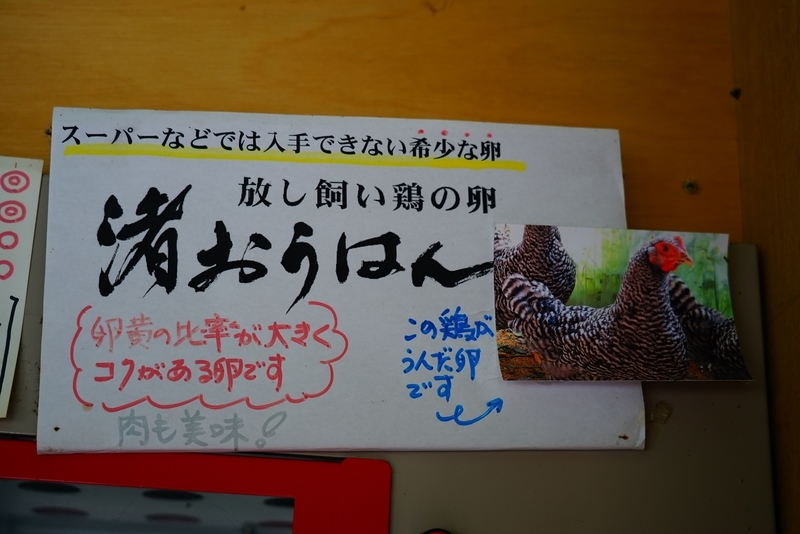 スーパーなどでは入手できない希少な卵
放し飼い鶏の卵
渚おうはん
卵黄の比率が大きく
コクがある卵です
肉も美味!
この鶏が
うんだ卵
です